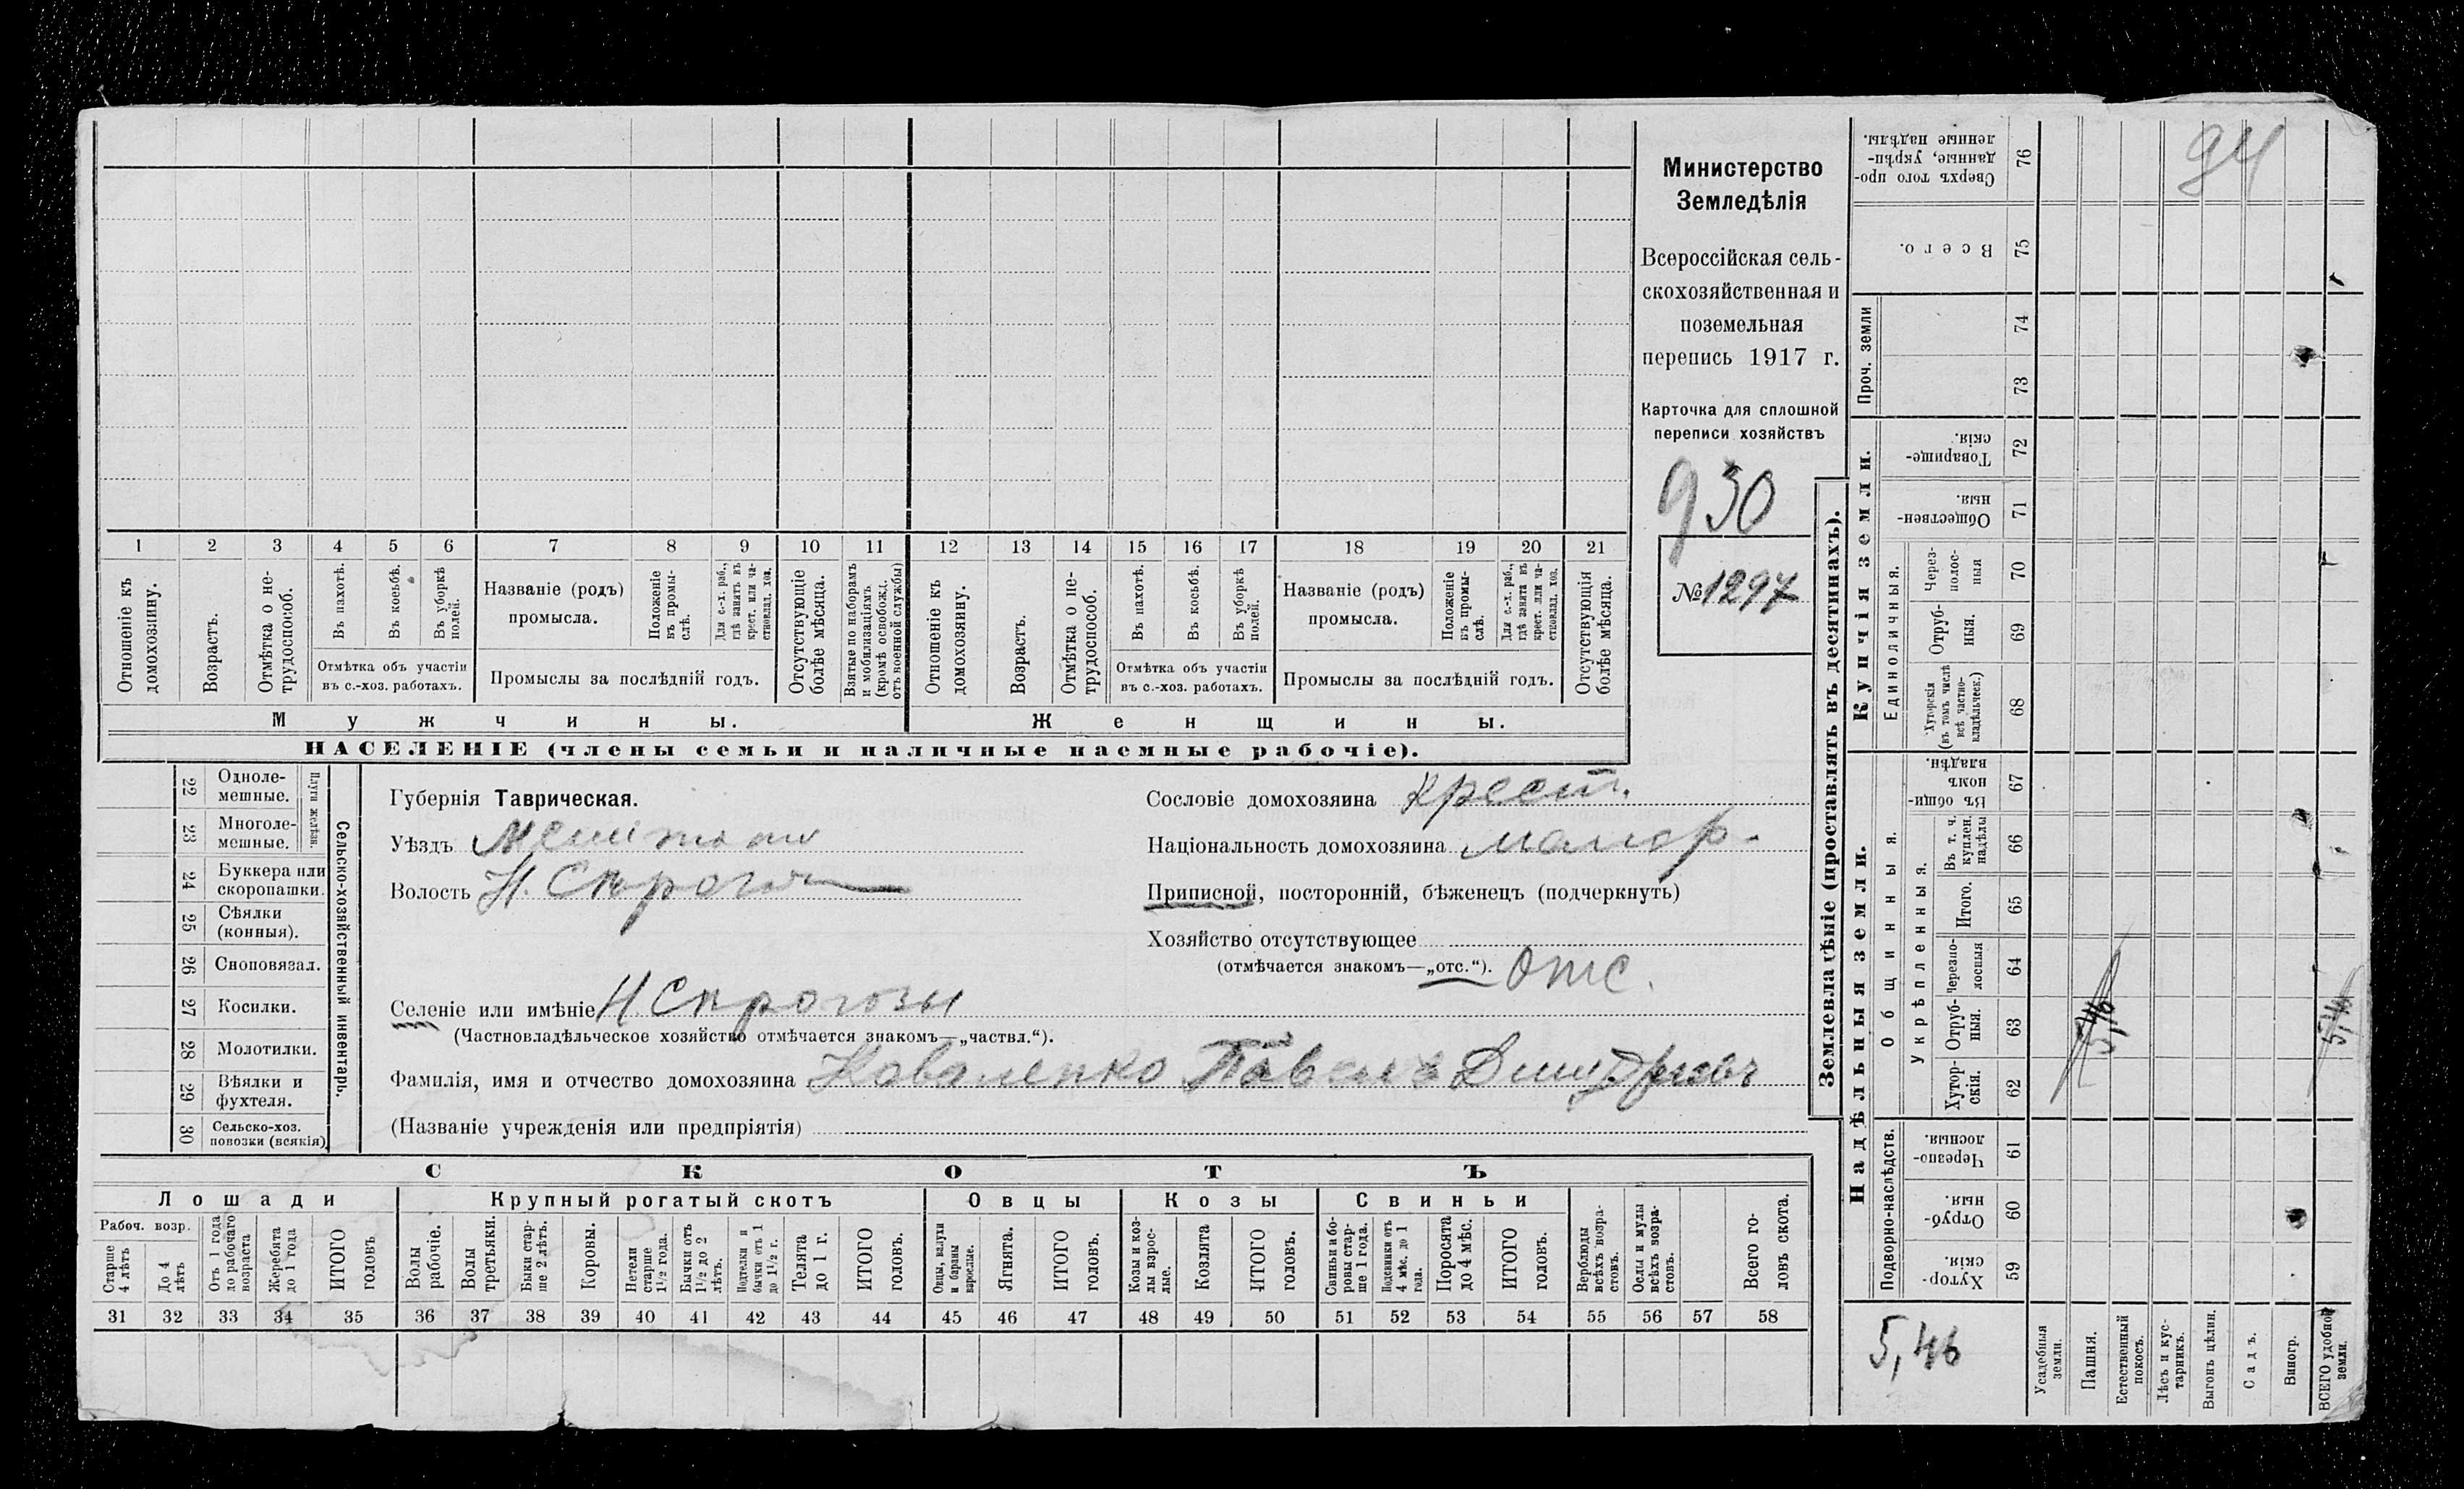 Министерство
Земледѣлія
Всероссійская сель-
скохозяйственная и
поземельная
перепись 1917 г.
Карточка для сплошной
переписи хозяйствъ
930
№ 1297
94
1 2 3 4 5 6 7 8 9 10 11 12 13 14 15 16 17 18 19 20 21
Отношеніе къ домохозяину.
Возрастъ.
Отмѣтка о не-трудоспособ.
Въ пахотѣ.
Въ косьбѣ.
Въ уборкѣ полей.
Отмѣтка объ участіи
въ с.-хоз. работахъ.
Названіе (родъ)
промысла.
Положеніе въ промы-слѣ.
Для с.-х. раб., гдѣ занятъ въ крест. или ча-стновлад. хоз.
Промыслы за послѣдній годъ.
Отсутствующіе болѣе мѣсяца.
Взятые по наборамъ и мобилизаціямъ (кромѣ освобожд. отъ военной службы)
Отношеніе къ домохозяину.
Возрастъ.
Отмѣтка о не-трудоспособ.
Въ пахотѣ.
Въ косьбѣ.
Въ уборкѣ полей.
Отмѣтка объ участіи
въ с.-хоз. работахъ.
Названіе (родъ)
промысла.
Положеніе въ промы-слѣ.
Для с.-х. раб., гдѣ занята въ крест. или ча-стновлад. хоз.
Промыслы за послѣдній годъ.
Отсутствующія болѣе мѣсяца.
Мужчины. Женщины.
НАСЕЛЕНІЕ (члены семьи и наличные наемные рабочіе).
22 Одноле-мешные.
23 Многоле-мешные.
Плуги желѣзн.
24 Буккера или скоропашки.
25 Сѣялки (конныя).
26 Сноповязал.
27 Косилки.
28 Молотилки.
29 Вѣялки и фухтеля.
30 Сельско-хоз. повозки (всякія)
Сельско-хозяйственный инвентарь.
Губернія Таврическая.
Уѣздъ Мелитопо
Волость Н. Сѣрогозы
Селеніе или имѣніе Н Сѣрогозы
(Частновладѣльческое хозяйство отмѣчается знакомъ—„частвл.“).
Фамилія, имя и отчество домохозяина Коваленко Павелъ Дмитріевъ
(Названіе учрежденія или предпріятія)
Сословіе домохозяина крест.
Національность домохозяина малор.
Приписной, посторонній, бѣженецъ (подчеркнуть)
Хозяйство отсутствующее
(отмѣчается знакомъ—„отс.“). Отс.
СКОТЪ
Лошади Крупный рогатый скотъ Овцы Козы Свиньи
Рабоч. возр.
Старше 4 лѣтъ
До 4 лѣтъ
Отъ 1 года до рабочаго возраста
Жеребята до 1 года
ИТОГО головъ
Волы рабочіе.
Волы третьяки.
Быки стар-ше 2 лѣтъ.
Коровы.
Нетели старше 1½ года.
Бычки отъ 1½ до 2 лѣтъ.
Подтелки и бычки отъ 1 до 1½ г.
Телята до 1 г.
ИТОГО головъ.
Овцы, валухи и бараны взрослые.
Ягнята.
ИТОГО головъ.
Козы и коз-лы взрос-лые.
Козлята
ИТОГО головъ.
Свиньи и бо-ровы стар-ше 1 года.
Подсвинки отъ 4 мѣс. до 1 года.
Поросята до 4 мѣс.
ИТОГО головъ.
Верблюды всѣхъ возра-стовъ.
Ослы и мулы всѣхъ возра-стовъ.
Всего го-ловъ скота.
31 32 33 34 35 36 37 38 39 40 41 42 43 44 45 46 47 48 49 50 51 52 53 54 55 56 57 58
Землевладѣніе (проставлять въ десятинахъ).
Сверхъ того про-данные, укрѣп-ленные надѣлы. 76
Всего. 75
Проч. земли
74
73
Купчія земли.
Товарище-скія. 72
Обществен-ныя. 71
Единоличныя.
Через-полос-ныя 70
Отруб-ныя. 69
Хуторскія (въ томъ числѣ всѣ частно-владѣльческ.) 68
Надѣльныя земли.
Общинныя.
Въ общи-номъ владѣн. 67
Укрѣпленныя.
Въ т. ч. куплен. надѣлы 66
Итого. 65
Черезпо-лосныя 64
Отруб-ныя. 63
Хутор-скія. 62
Подворно-наслѣдств.
Черезпо-лосныя. 61
Отруб-ныя. 60
Хутор-скія. 59
5,46
5,46
5,46
Усадебныя земли.
Пашня.
Естественный покосъ.
Лѣсъ и кус-тарникъ.
Выгонъ цѣлин.
Садъ.
Виногр.
ВСЕГО удобной земли.